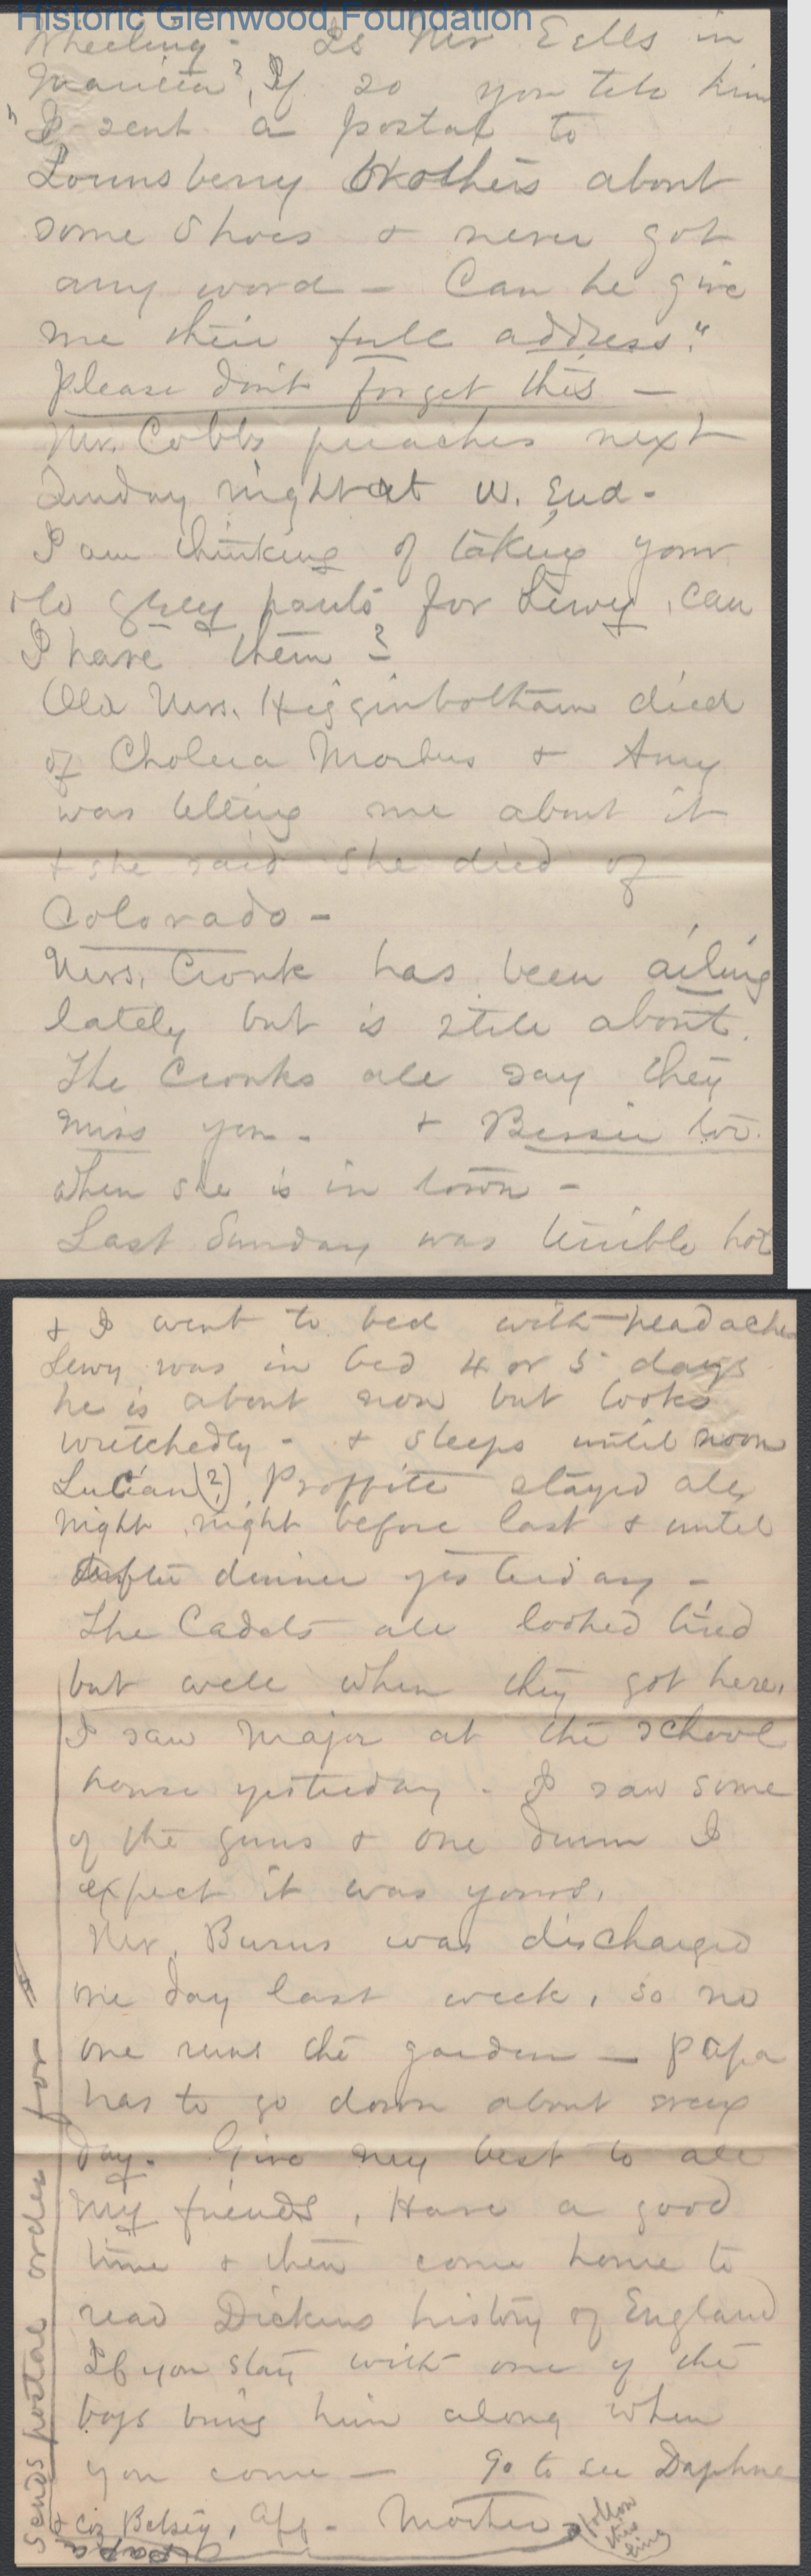 Historic Glenwood Foundation
Wheeling - Is Mr Eells in
Marietta?, If so you tell him
"I sent a postal to
Lounsberry Brothers about
some shoes & never got
any word - Can he give
me their full address."
Please don't forget this -
Mr. Cobbs preaches next
Sunday night at W. End -
I am thinking of taking your
old grey pants for Lewy, can
I have them?
Old Mrs. Higginbotham died
of Cholera Morbus & Amy
was telling me about it
& she said she died of
Colorado -
Mrs. Cronk has been ailing
lately but is still about.
The Cronks all say they
miss you - & Bessie too.
when she is in town -
Last Sunday was terrible hot
& I went to bed with headache
Lewy was in bed 4 or 5 days
he is about now but looks
wretchedly - & sleeps until noon
Lucian(?) Proffitt stayed all
night night before last & until
after dinner yesterday -
The Cadets all looked tired
but well when they got here.
I saw Major at the school
house yesterday - I saw some
of the guns & one drum I
expect it was yours.
Mr. Burns was discharged
one day last week, so no
one runs the garden - papa
has to go down about every
day. Give my best to all
my friends, Have a good
time & then come home to
read Dickens history of England
If you stay with one of the
boys bring him along when
you come - go to see Daphne
& Coz Betsey, Aff - Mother
follow
this
line
papa
sends postal order for